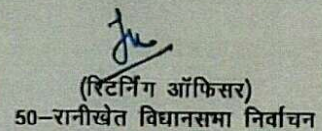 (रिटर्निंग ऑफिसर)
50–रानीखेत विधानसभा निर्वाचन